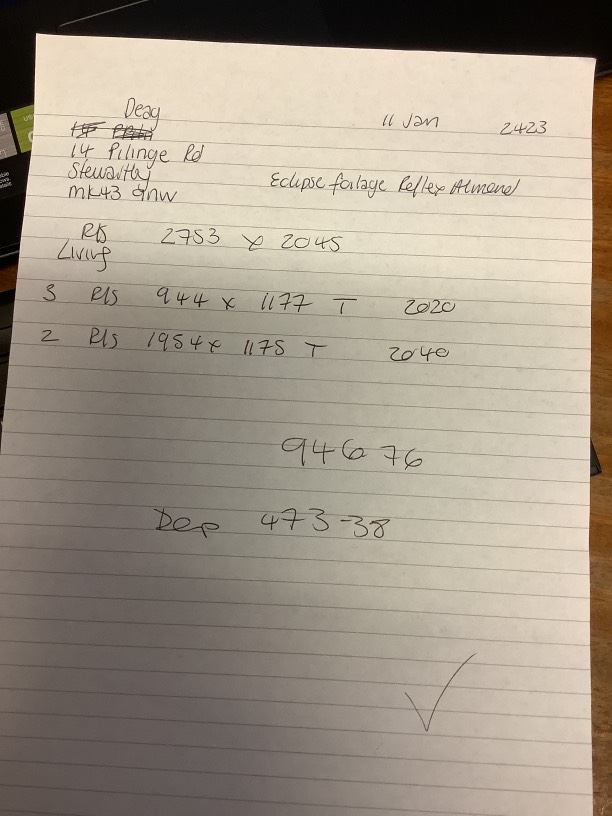 Deag
11 Jan 2423
14 Pilinge Rd
Stewartby
Eclipse foilage Reflex Almond
MK43 9NW
R/S 2753 x 2045
Living
3 R/S 944 x 1177 T 2020
2 R/S 1954 x 1175 T 2040
946 76
Dep 473-38